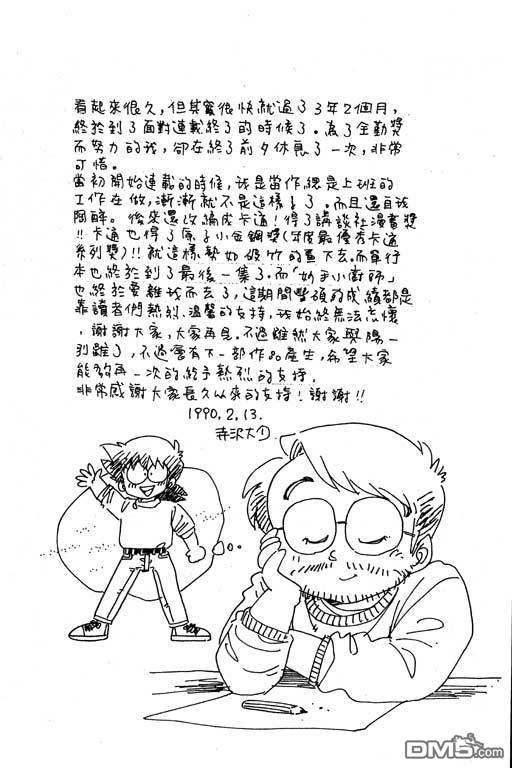 看起來很久，但其實很快就過了3年2個月，
終於到了面對連載終了的時候了。為了全勤獎
而努力的我，卻在終了前夕休息了一次，非常
可惜。
當初開始連載的時候，我是當作總是上班的
工作在做，漸漸就不是這樣了。而且還自我
陶醉。後來還改編成卡通！得了講談社漫畫獎
!!卡通也得了原子小金鋼獎(年度最優秀卡通
系列獎)!!就這樣勢如破竹的畫下去。而單行
本也終於到了最後一集了。而「妙手小廚師」
也終於要離我而去了，這期間豐碩的成績都是
靠讀者們熱烈、溫馨的支持，我始終無法忘懷
，謝謝大家，大家再見。不過雖然大家與陽一
別離了，不過會有下一部作品產生，希望大家
能夠再一次的給予熱烈的支持。
非常感謝大家長久以來的支持！謝謝!!
1990.2.13.
寺沢大介
DM5.com